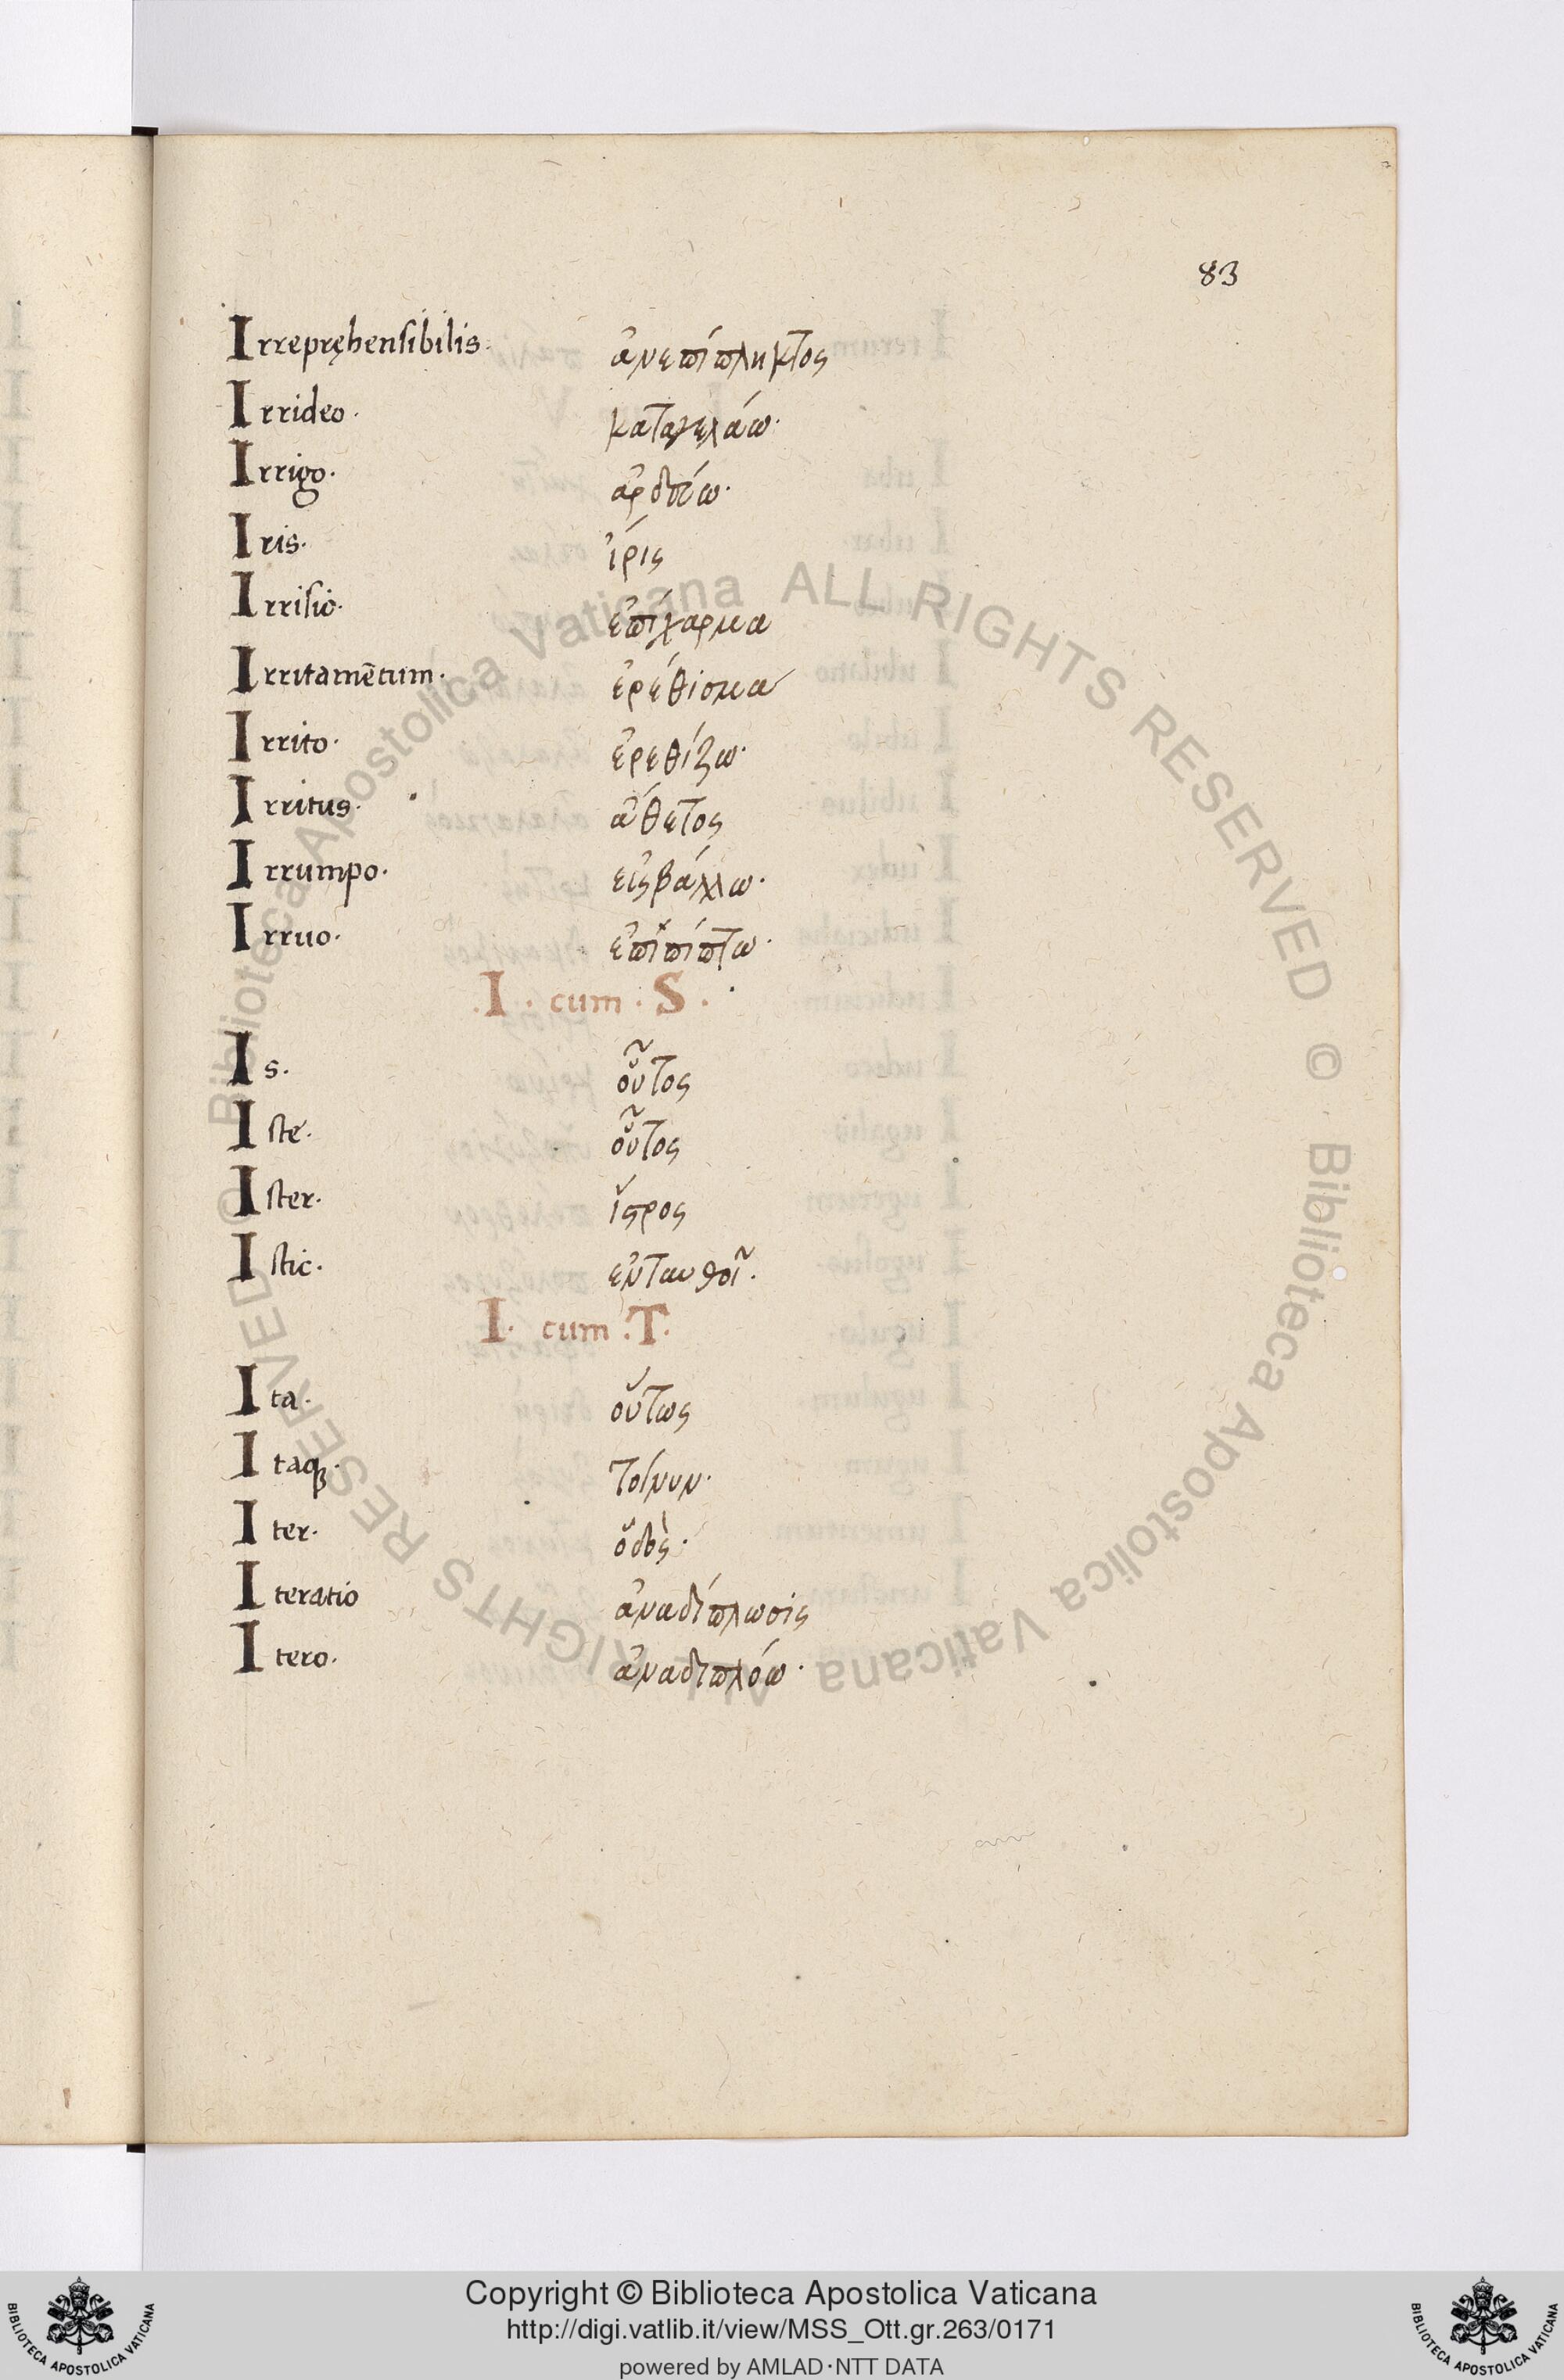 83
Irrepręhensibilis· ἀνεπίπληκτος
Irrideo· καταγελάω·
Irrigo· ἀρδεύω·
Iris· ἰρίς
Irrisio· ἐπίχαρμα
Irritamētum· ἐρέθισμα
Irrito· ἐρεθίζω·
Irritus· ἄθετος
Irrumpo· εἰςβάλλω·
Irruo· ἐπϊπίπτω·
·I· cum · S ·
Is· οὗτος
Iste· οὗτος
Ister· ἴςρος
Istic· ἐνταυθοῖ·
I· cum ·T·
Ita· οὕτως
Itaqꝫ· τοίνυν·
Iter· ὅδὸς·
Iteratio ἀναδίπλωσις
Itero· ἀναδιπλόω·
Biblioteca Apostolica Vaticana ALL RIGHTS RESERVED © Biblioteca Apostolica Vaticana ALL RIGHTS RESERVED ©
Copyright © Biblioteca Apostolica Vaticana
http://digi.vatlib.it/view/MSS_Ott.gr.263/0171
powered by AMLAD·NTT DATA
BIBLIOTECA APOSTOLICA VATICANA
BIBLIOTECA APOSTOLICA VATICANA